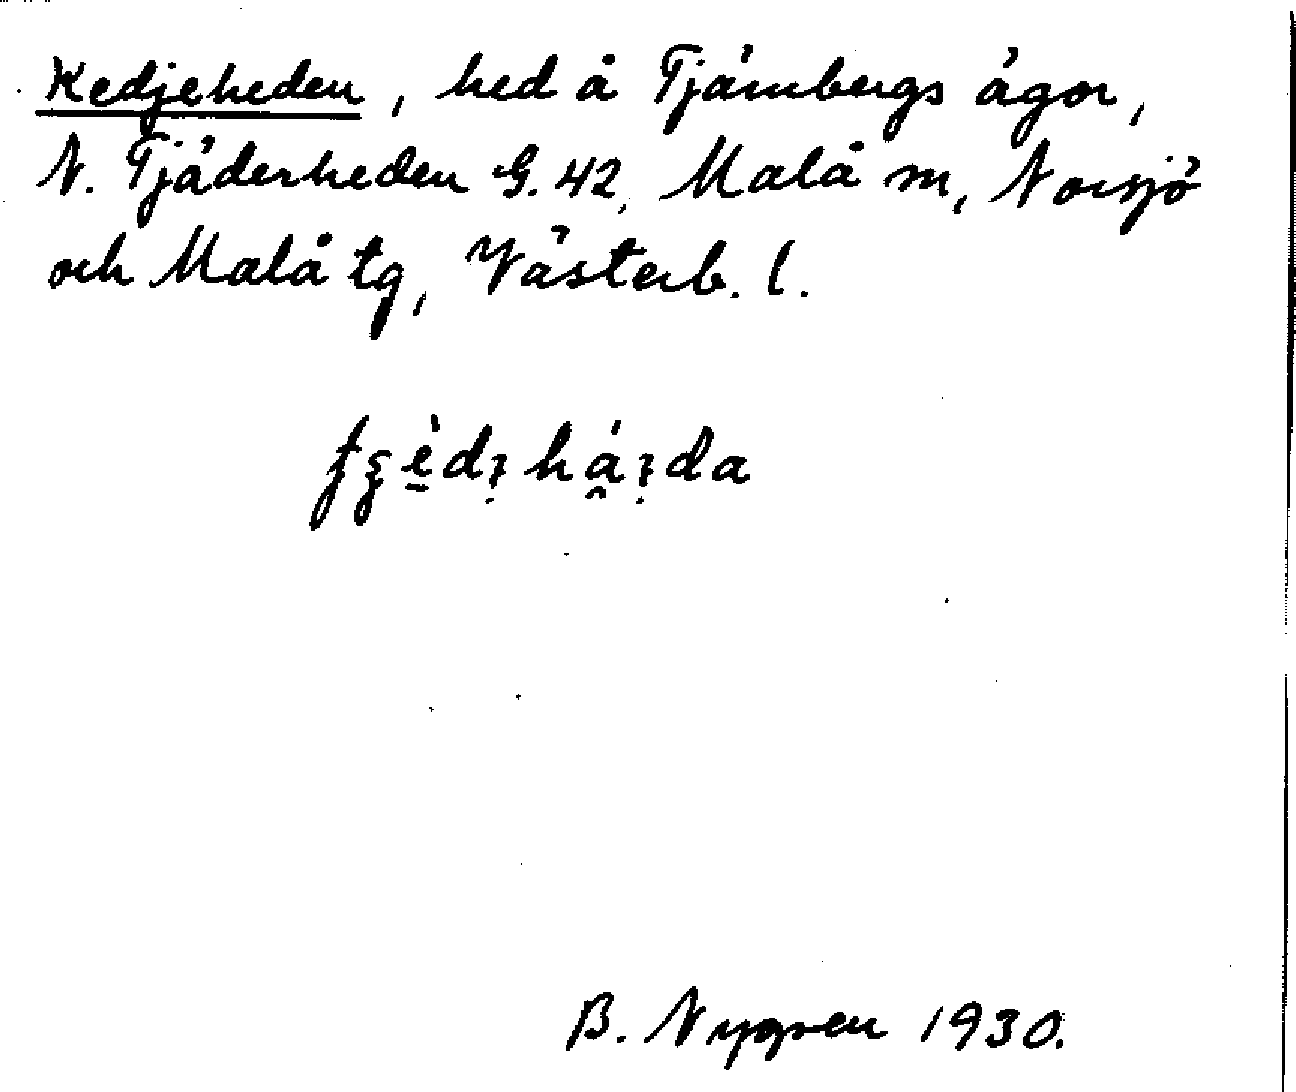 Kedjeheden, hed å Tjämbergs ägor,
N. Tjäderheden G. 42, Malå sn, Norsjö
och Malå tg, Västerb. l.
B. Nygren 1930.